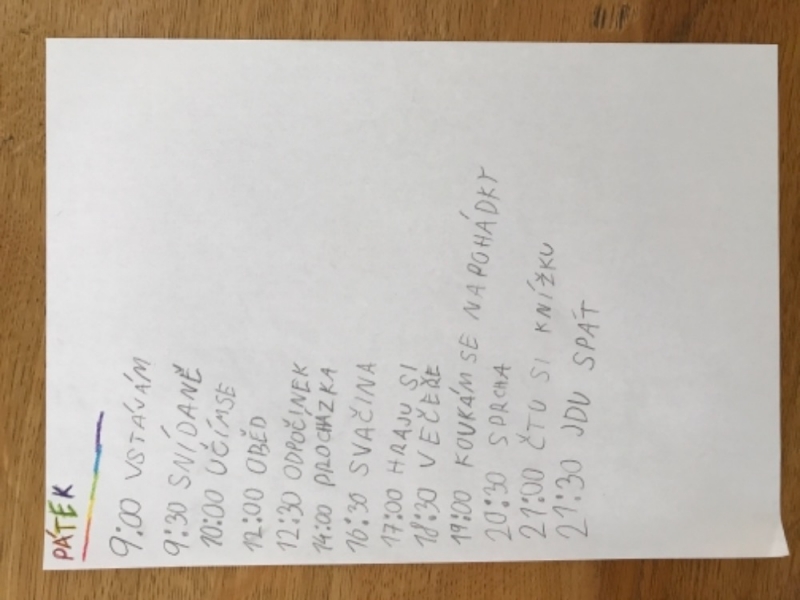 PÁTEK
9:00 VSTÁVÁM
9:30 SNÍDANĚ
10:00 UČÍMSE
12:00 OBĚD
12:30 ODPOČINEK
14:00 PROCHÁZKA
16:30 SVAČINA
17:00 HRAJU SI
18:30 VEČEŘE
19:00 KOUKÁM SE NAPOHÁDKY
20:30 SPRCHA
21:00 ČTU SI KNÍŽKU
21:30 JDU SPÁT